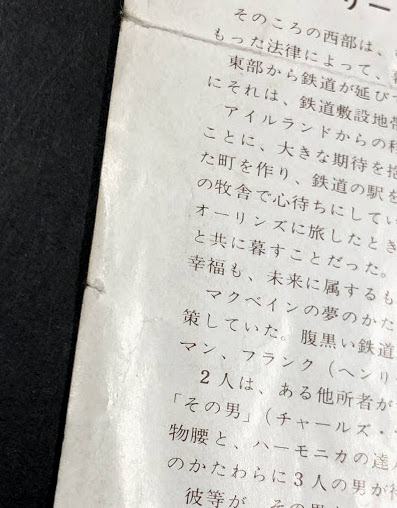 リー
そのころの西部は、
もった法律によって、
東部から鉄道が延び
にそれは、鉄道敷設地帯
アイルランドからの移
ことに、大きな期待を抱
た町を作り、鉄道の駅を
の牧舎で心待ちにしてい
オーリンズに旅したとき
と共に暮すことだった。
幸福も、未来に属するも
マクベインの夢のかた
策していた。腹黒い鉄道
マン、フランク（ヘンリ
2人は、ある他所者が
「その男」（チャールズ・
物腰と、ハーモニカの達
のかたわらに3人の男が待
彼等が、その男